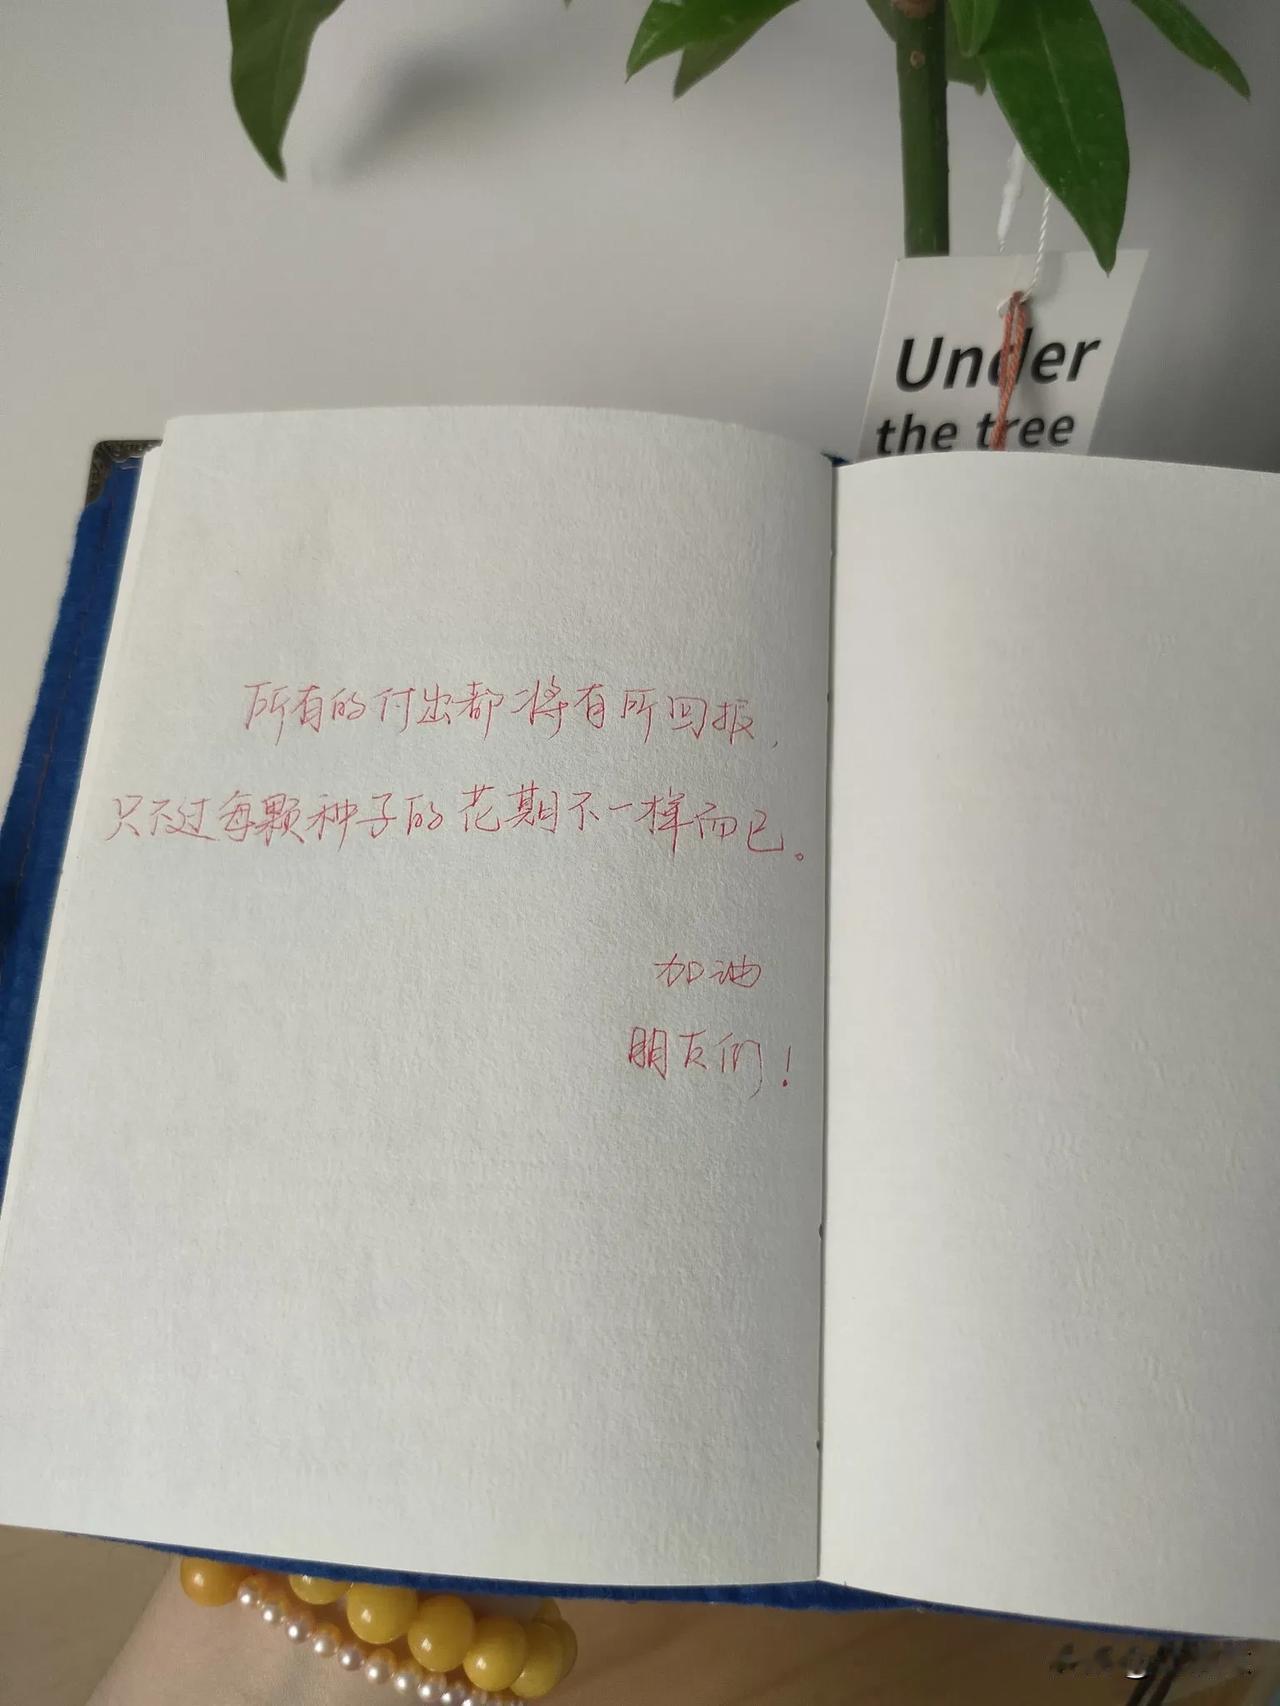 Under
the tree
所有的付出都将有所回报，
只不过每颗种子的花期不一样而已。
加油
朋友们！